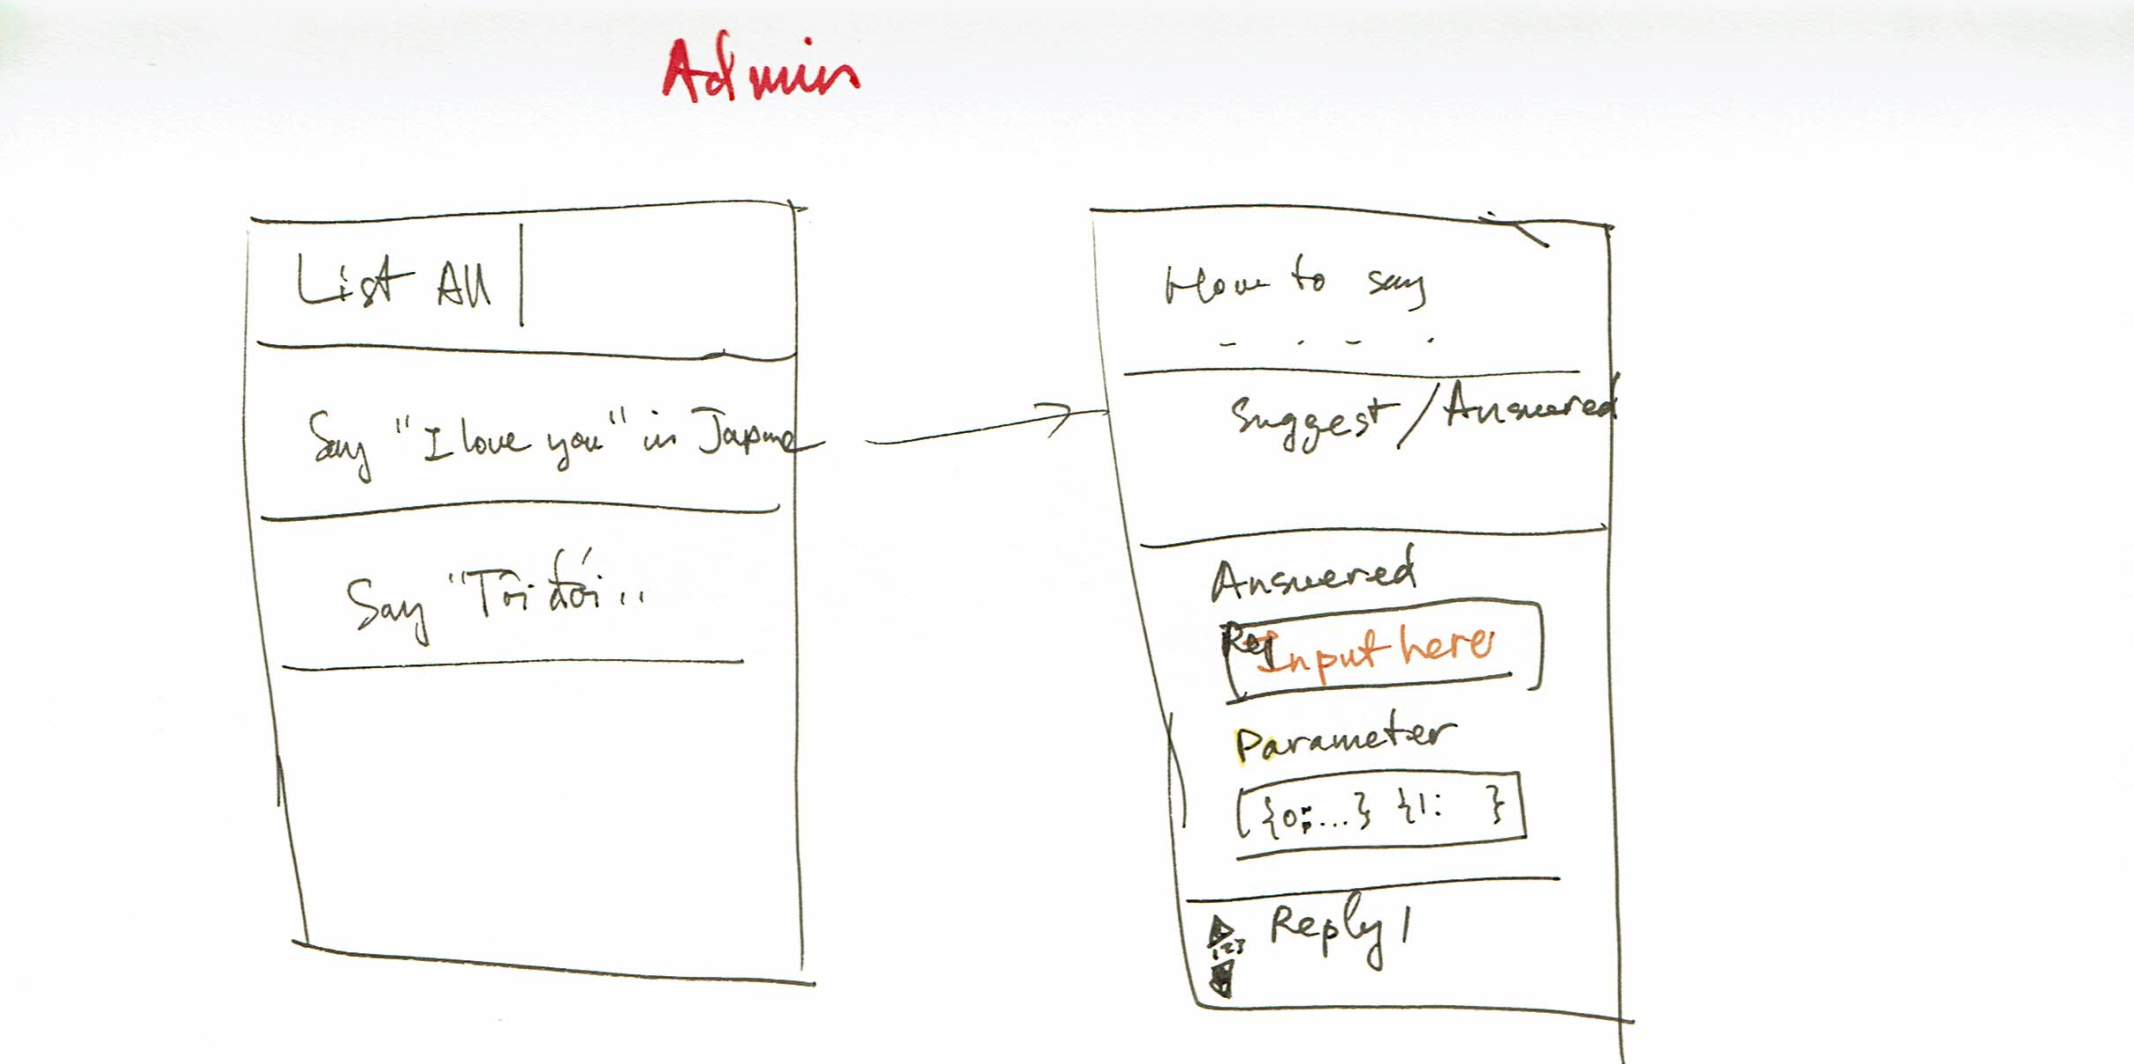 Admin
List All
Say "I love you" in Japane
Say "Tôi đói ..
How to say
- . - .
Suggest / Answered
Answered
Req
Input here
Parameter
{0:...} {1: }
Reply 1
123